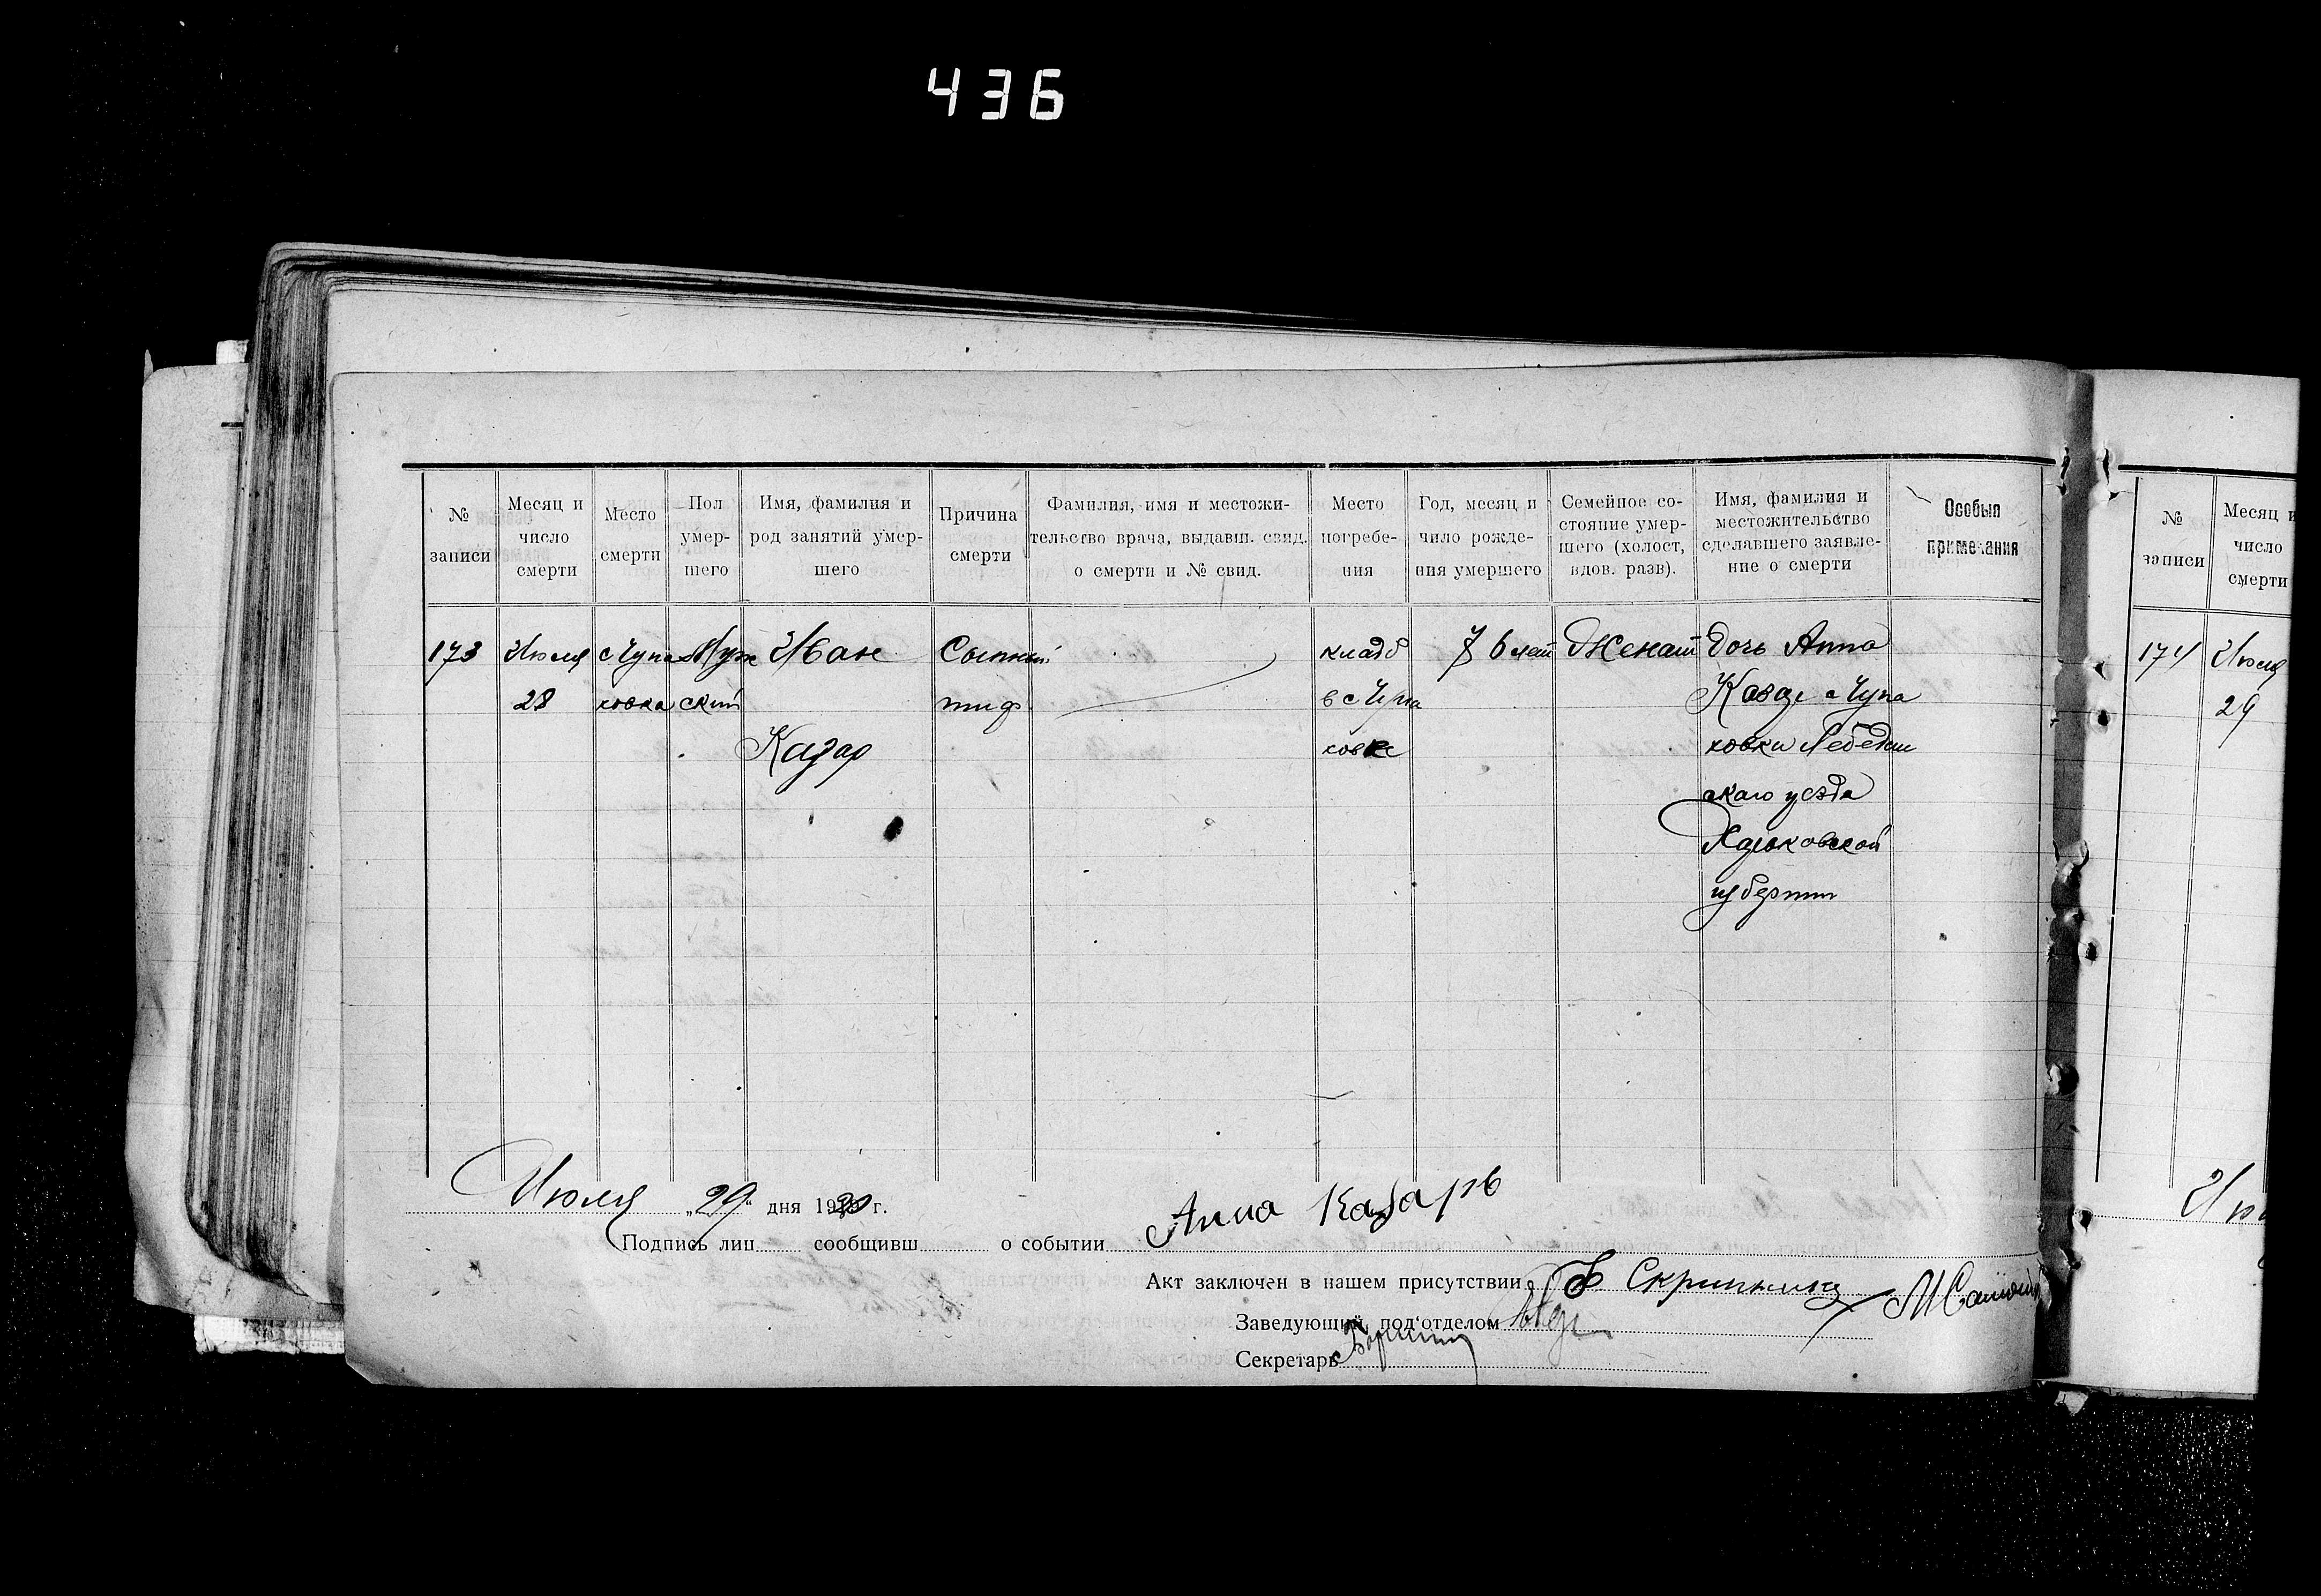 436
№ записи
Месяц и число смерти
Место смерти
Пол умер-шего
Имя, фамилия и род занятий умер-шего
Причина смерти
Фамилия, имя и местожи-тельство врача, выдавш. свид. о смерти и № свид.
Место погребе-ния
Год, месяц и чило рожде-ния умершего
Семейное со-стояние умер-шего (холост, вдов. разв).
Имя, фамилия и местожительство сделавшего заявле-ние о смерти
Особыя примечания
173
Июля
28
с Чупа
ховка
Муж
ский
Иван
Казар
Сыпный
тиф
кладб
в с Чупа
ховке
76 лет
Женат
дочь Анна
Казар с Чупа
ховки Лебедин
скаго уезда
Харьковской
губернии
Июля „29“ дня 1920 г.
Подпись лиц сообщивш о событии Анна Казарь
Акт заключен в нашем присутствии Скрипник
Заведующий под'отделом
Секретарь
№ записи
Месяц и число смерти
174
Июля
29